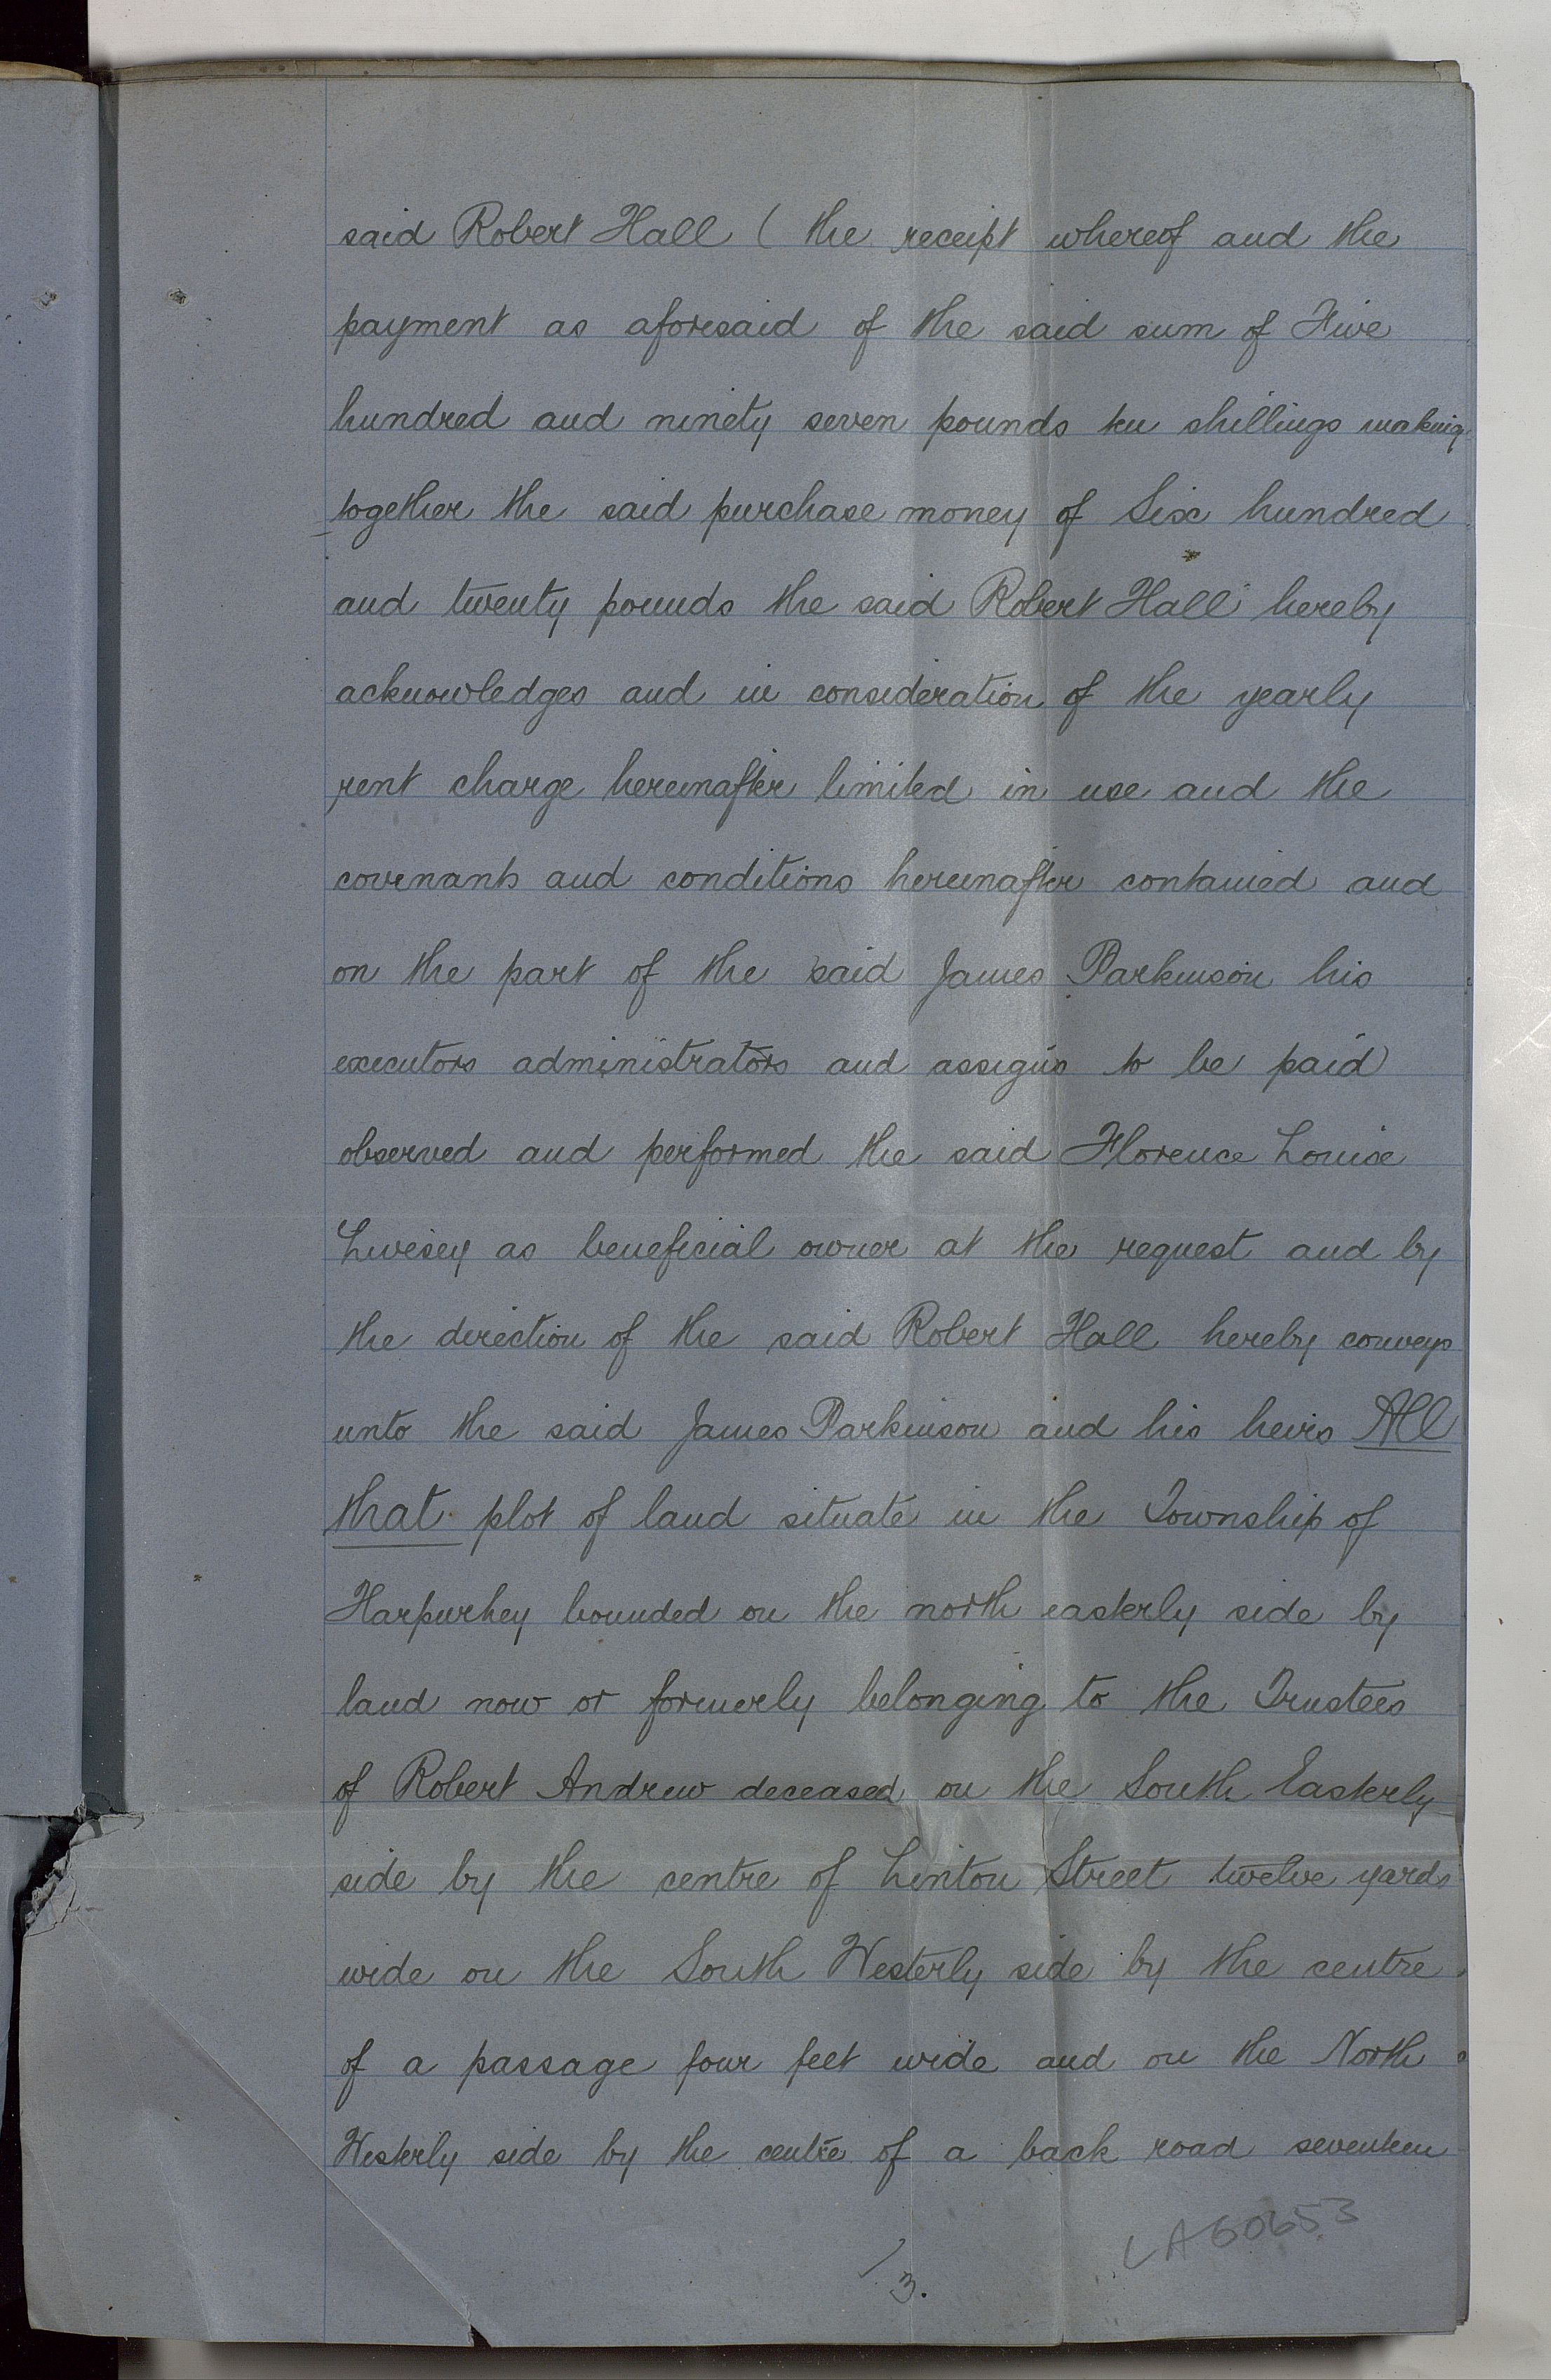 said Robert Hall ( the receipt whereof and the
payment as aforesaid of the said sum of Five
hundred and ninety seven pounds ten shillings making
together the said purchase money of Six hundred
and twenty pounds the said Robert Hall hereby
acknowledges and in consideration of the yearly
rent charge hereinafter limited in use and the
covenants and conditions hereinafter contained and
on the part of the said James Parkinson his
executors administrators and assigns to be paid
observed and performed the said Florence Louise
Livesey as beneficial owner at the request and by
the direction of the said Robert Hall hereby conveys
unto the said James Parkinson and his heirs All
that plot of land situate in the Township of
Harpurhey bounded on the north easterly side by
land now or formerly belonging to the Trustees
of Robert Andrew deceased on the South Easterly
side by the centre of Linton Street twelve yards
wide on the South Westerly side by the centre
of a passage four feet wide and on the North
Westerly side by the centre of a back road seventeen
LA60653
3.